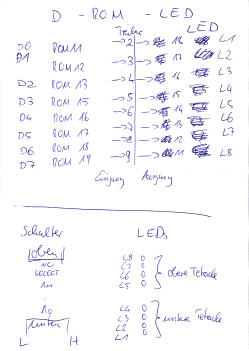 D - ROM - LED
Treiber LED
D0 ROM 11 → 2 → 18 L1
D1 ROM 12 → 3 → 17 L2
D2 ROM 13 → 4 → 16 L3
D3 ROM 15 → 5 → 15 L4
D4 ROM 16 → 6 → 14 L5
D5 ROM 17 → 7 → 13 L6
D6 ROM 18 → 8 → 12 L7
D7 ROM 19 → 9 → 11 L8
Eingang Ausgang
Schalter LEDs
oben
NC
SELECT
L8 0
L7 0
L6 0 obere Tetrade
L5 0
A0
unten
L H
L4 0
L3 0 untere Tetrade
L2 0
L1 0